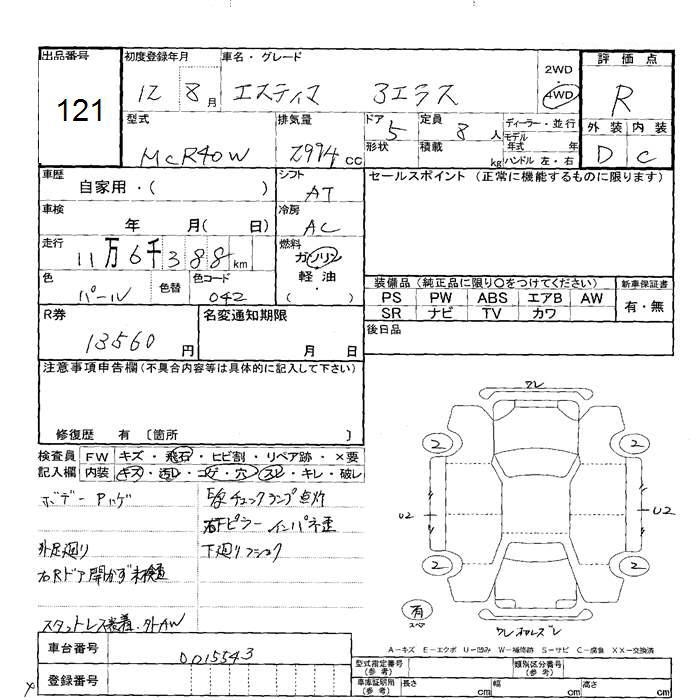 出品番号 初度登録年月 車名・グレード 評価点
121 12 8月 エスティマ 3エラス 2WD 4WD R
型式 排気量 ドア 5 定員 8人 ディーラー・並行
モデル
外装 内装
MCR40W 2994cc 形状 積載 kg 年式 年
ハンドル 左・右 D C
車歴 シフト セールスポイント (正常に機能するものに限ります)
自家用・( ) AT
車検 冷房
年 月( 日) AC
走行 燃料
11万6千388km ガソリン
軽油
色 色替 色コード ・
パール 042 ( )
装備品 (純正品に限り○をつけてください) 新車保証書
PS PW ABS エアB AW 有・無
SR ナビ TV カワ
R券 名変通知期限 後日品
13560円 月 日
注意事項申告欄(不具合内容等は具体的に記入して下さい)
修復歴 有 〔箇所 〕
検査員 FW キズ・飛石・ヒビ割・リペア跡・×要
記入欄 内装 キズ・汚レ・コゲ・穴・スレ・キレ・破レ
ボデー Pハゲ
チェックランプ点灯
右Fピラー インパネ歪
外足廻り 下廻り
右Rドア開かず未検査
スタットレス装着・外AW
ワレ
2 2
U2 U2
2 2
有
スペア
ワレ
A-キズ E-エクボ U-凹み W-補修跡 S-サビ C-腐食 XX-交換済
車台番号 0015543
登録番号
型式指定番号 (参考) 類別区分番号 (参考)
車庫証明用 (参考) 長さ cm 幅 cm 高さ cm